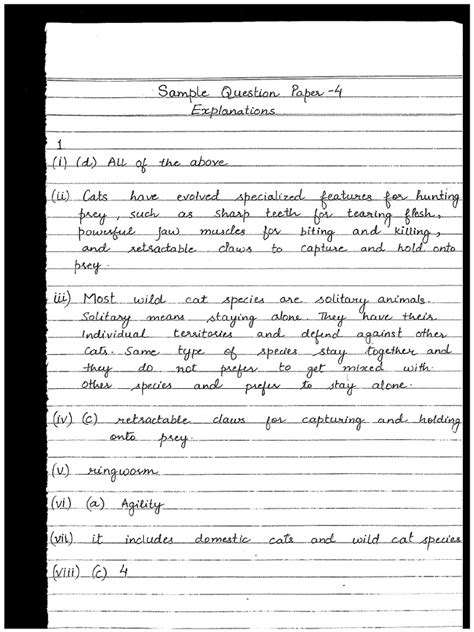 Sample Question Paper-4
Explanations
1
(i) (d) All of the above
(ii) Cats have evolved specialized features for hunting
prey, such as sharp teeth for tearing flesh,
powerful jaw muscles for biting and killing,
and retractable claws to capture and hold onto
prey.
iii) Most wild cat species are solitary animals.
Solitary means staying alone. They have their
individual territories and defend against other
cats. Same type of species stay together and
they do not prefer to get mixed with
other species and prefer to stay alone.
(iv) (c) retractable claws for capturing and holding
onto prey.
(v) ringworm
(vi) (a) Agility
(vii) it includes domestic cats and wild cat species
(viii) (c) 4